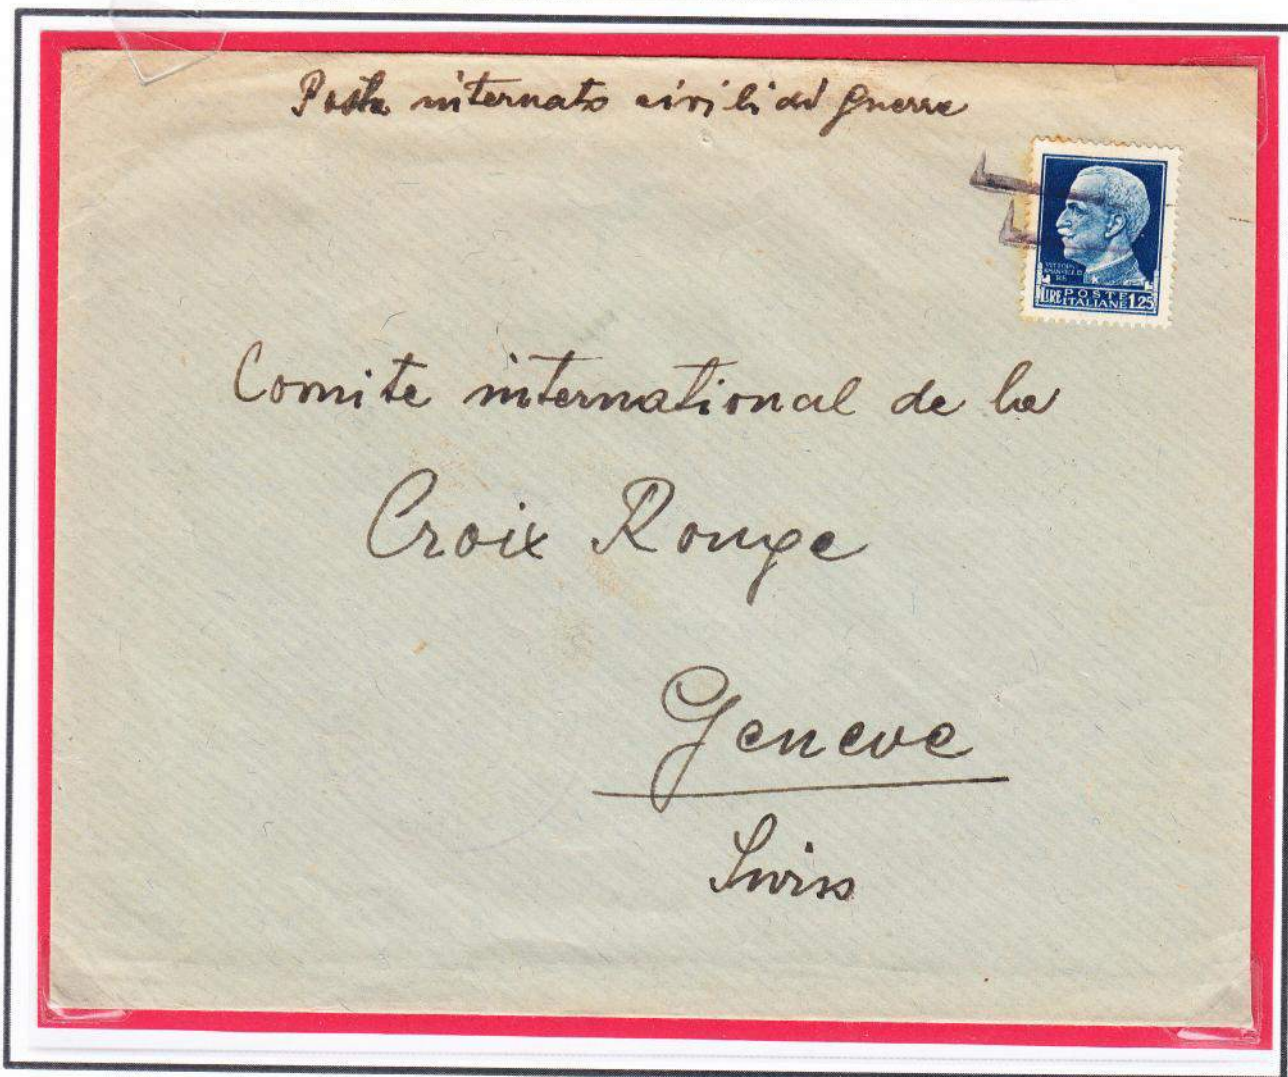 Posta internato civili di guerra
VITTORIO
EMANUELE III
RE
LIRE POSTE ITALIANE 1,25
Comite international de la
Croix Rouge
Geneve
Swiss